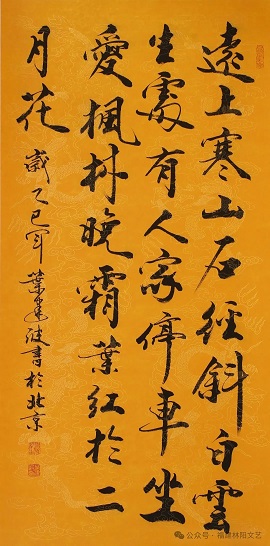 遠上寒山石徑斜白雲
生處有人家停車坐
愛楓林晚霜葉紅於二
月花
歲乙巳年葉建波書於北京
公众号 · 福建林阳文艺